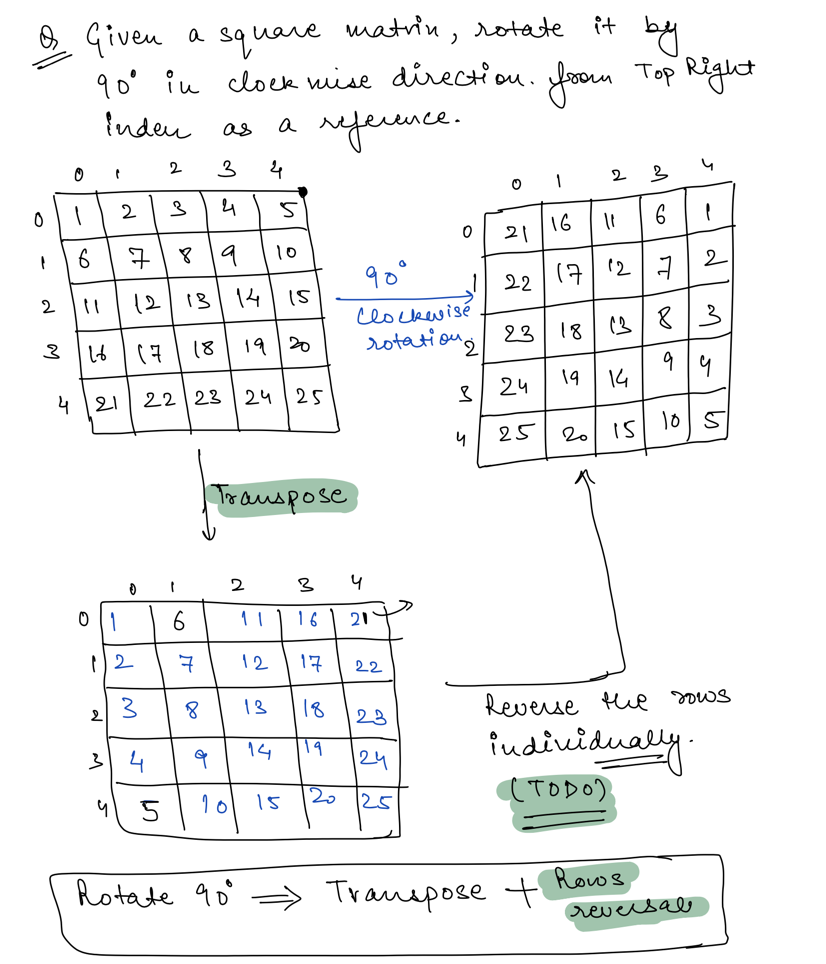 Q Given a square matrin, rotate it by
90° in clockwise direction. from Top Right
index as a reference.
0 1 2 3 4
0 1 2 3 4 5
1 6 7 8 9 10
2 11 12 13 14 15
3 16 17 18 19 20
4 21 22 23 24 25
90°
Clockwise
rotation
0 1 2 3 4
0 21 16 11 6 1
1 22 17 12 7 2
2 23 18 13 8 3
3 24 19 14 9 4
4 25 20 15 10 5
Transpose
0 1 2 3 4
0 1 6 11 16 21
1 2 7 12 17 22
2 3 8 13 18 23
3 4 9 14 19 24
4 5 10 15 20 25
Reverse the rows
individually.
(TODO)
Rotate 90° ⇒ Transpose + Rows
reversal